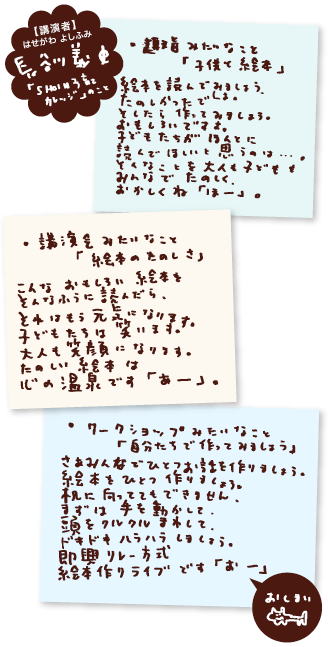 【講演者】
はせがわ よしふみ
長谷川 義史
のこと
・趣旨 みたいなこと
「子供と絵本」
絵本を読んでみましょう。
たのしかったでしょ。
としたら 作ってみましょう。
おもしろいですよ。
子どもたちが ほんとに
読んでほしいと 思うのは…。
そんなことを 大人も子どもも
みんなで たのしく、
おかしくね「ほー」。
・講演会 みたいなこと
「絵本のたのしさ」
こんな おもしろい 絵本を
こんなふうに 読んだら、
それはもう 元気になります。
子どもたちは 笑います。
大人も 笑顔 になります。
たのしい 絵本 は
心の 温泉 です「あー」。
・ワークショップ みたいなこと
「自分たちで 作ってみましょう」
さあみんなで ひとつお話を 作りましょう。
絵本を ひとつ 作りましょう。
机に 向ってても できません、
まずは 手を 動かして、
頭を クルクル まわして、
ドキドキ ハラハラ しましょう。
即興 リレー方式
絵本作り ライブ です「おー」
おしまい